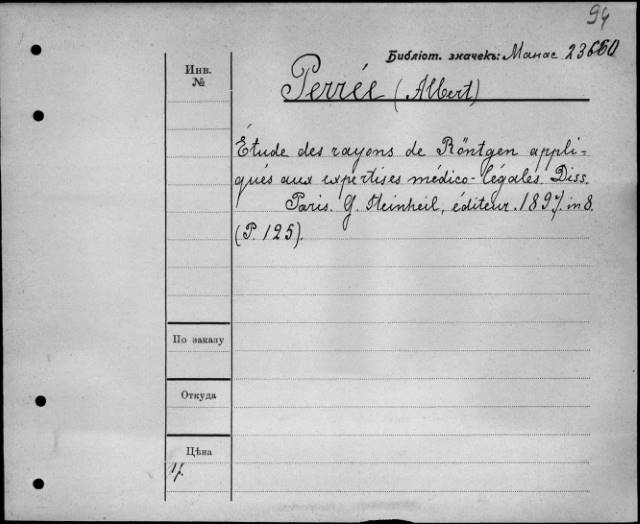 94
Библіот. значекъ: Манас 23660
Инв.
№
Perrée (Albert)
Étude des rayons de Röntgen appli-
qués aux expertises médico-légales. Diss.
Paris. G. Steinheil, éditeur. 1897. in 8.
(P. 125).
По заказу
Откуда
Цѣна